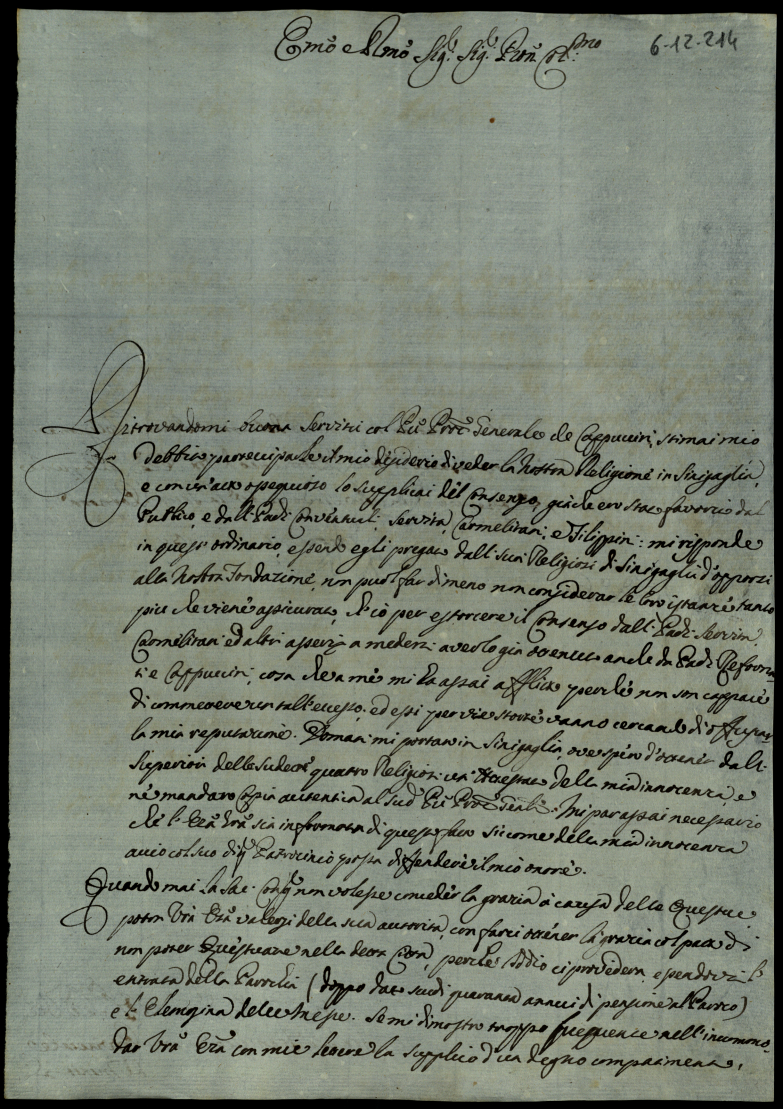 Emo e Rmo Sig.r Sig.r Pron Col:mo
6-12-214
Ritrovandomi buona Servitù col P. Proc. Generale de Cappuccini, stimai mio
debbito parteciparle il mio disiderio di veder la nostra Religione in Sinigaglia,
e con un'atto ossequioso lo supplicai del Consenso, già che ero stato favorito dal
Publico, e dalli Padri Conventuali, Serviti, Carmelitani, e Filippini: mi risponde
in quest'ordinario, essendo egli pregato dalli suoi Religiosi di Sinigaglia d'opporsi
alla nostra Fondazione, non puol far di meno non considerar le loro istanze tanto
più che viene assicurato, ch'io per estorcere il Consenso dalli Padri Serviti
Carmelitani ed altri asserij a medesi averlo già ottenuto anche da Padri Reforma-
ti e Cappuccini, cosa che a me mi ha assai afflitto perché non son cappace
di commettere un tall'eccesso, ed essi per vie storte vanno cercando di
la mia reputazione. Domani mi portarò in Sinigaglia, ove spero d'ottener dalli
Superiori delle sudette quattro Religioni un'Attestato della mia innocenza, e
ne mandarò Copia autentica al sud.o P. Proc. Genle. Mi par assai necessario
che l'Emza Vra sia informata di questo fatto si come della mia innocenza
acciò col suo Patrocinio possa difendere il mio onore.
Quando mai la Sac. Cong. non volesse conceder la grazia a causa delle Questue
potrà Vra Emza valersi della sua autorità, con farci ottener la grazia col patto di
non poter Questuare nella detta Città, perché Iddio ci provederà, essendovi l'
entrata della Parochia (doppo dato scudi quaranta annui di pensione al Paroco)
e l'Elemosina delle Messe. Se mi dimostro troppo frequente nell'incomo-
dar Vra Emza con mie lettere la supplico d'un degno compatimento,